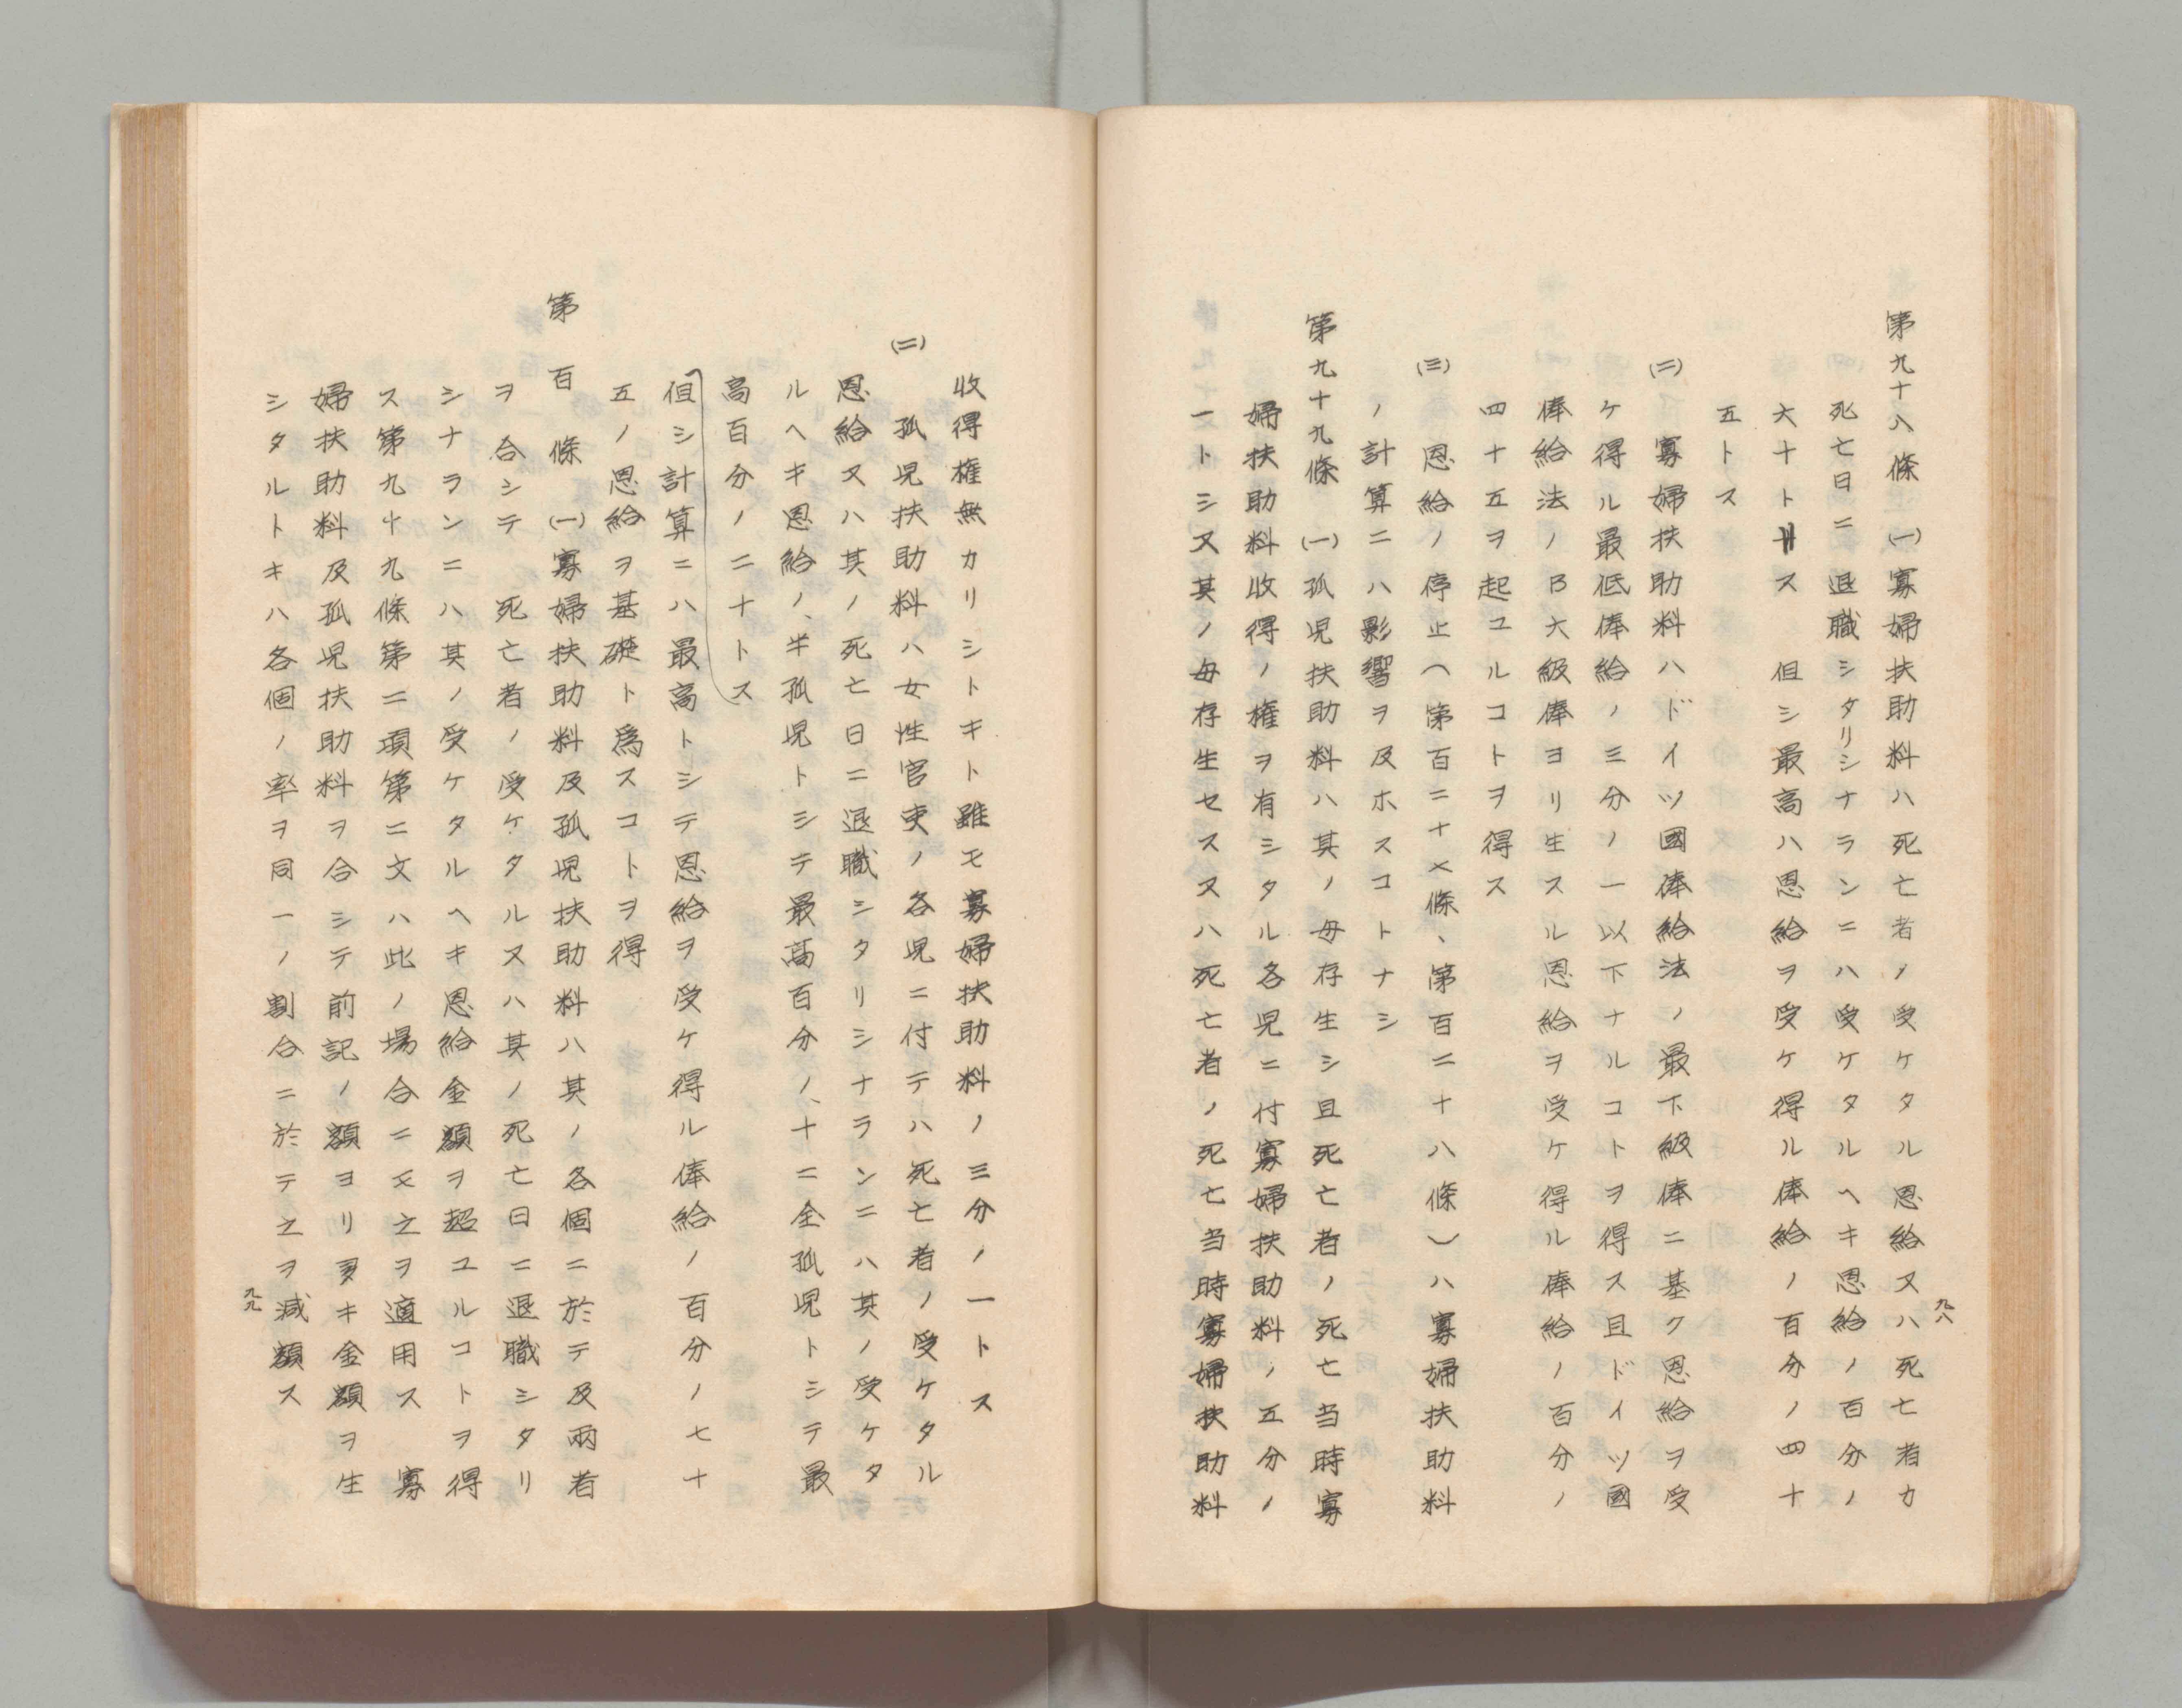 九八
第九十八條　(一)寡婦扶助料ハ死亡者ノ受ケタル恩給又ハ死亡者カ
死亡日ニ退職シタリシナランニハ受ケタルヘキ恩給ノ百分ノ
六十トス　但シ最高ハ恩給ヲ受ケ得ル俸給ノ百分ノ四十
五トス
(二)　寡婦扶助料ハドイツ國俸給法ノ最下級俸ニ基ク恩給ヲ受
ケ得ル最低俸給ノ三分ノ一以下ナルコトヲ得ス且ドイツ國
俸給法ノB六級俸ヨリ生スル恩給ヲ受ケ得ル俸給ノ百分ノ
四十五ヲ起ユルコトヲ得ス
(三)　恩給ノ停止(第百二十七條、第百二十八條)ハ寡婦扶助料
ノ計算ニハ影響ヲ及ホスコトナシ
第九十九條　(一)孤児扶助料ハ其ノ母存生シ且死亡者ノ死亡当時寡
婦扶助料收得ノ権ヲ有シタル各児ニ付寡婦扶助料ノ五分ノ
一トシ又其ノ母存生セス又ハ死亡者ノ死亡当時寡婦扶助料
收得権無カリシトキト雖モ寡婦扶助料ノ三分ノ一トス
(二)　孤児扶助料ハ女性官吏ノ各児ニ付テハ死亡者ノ受ケタル
恩給又ハ其ノ死亡日ニ退職シタリシナランニハ其ノ受ケタ
ルヘキ恩給ノ、半孤児トシテ最高百分ノ、十二全孤児トシテ最
高百分ノ二十トス
但シ計算ニハ最高トシテ恩給ヲ受ケ得ル俸給ノ百分ノ七十
五ノ恩給ヲ基礎ト爲スコトヲ得
第百條　(一)寡婦扶助料及孤児扶助料ハ其ノ各個ニ於テ及兩者
ヲ合シテ　死亡者ノ受ケタル又ハ其ノ死亡日ニ退職シタリ
シナランニハ其ノ受ケタルヘキ恩給金額ヲ超ユルコトヲ得
ス第九十九條第二項第二文ハ此ノ場合ニモ之ヲ適用ス　寡
婦扶助料及孤児扶助料ヲ合シテ前記ノ額ヨリ多キ金額ヲ生
シタルトキハ各個ノ率ヲ同一ノ割合ニ於テ之ヲ減額ス
九九